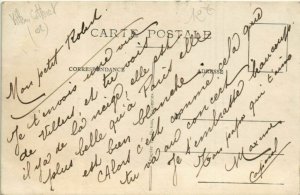 Villers Cotterets
CARTE POSTALE
CORRESPONDANCE
ADRESSE
Mon petit Robert
Je t'envois une vue
de Villers, et tu vois
il y a de la neige, elle est
plus belle qu'à Paris elle
est bien blanche
Alors c'est comme cela que
tu va au concert
Je t'embrasse beaucoup
Ton papa qui t'aime
Maxime